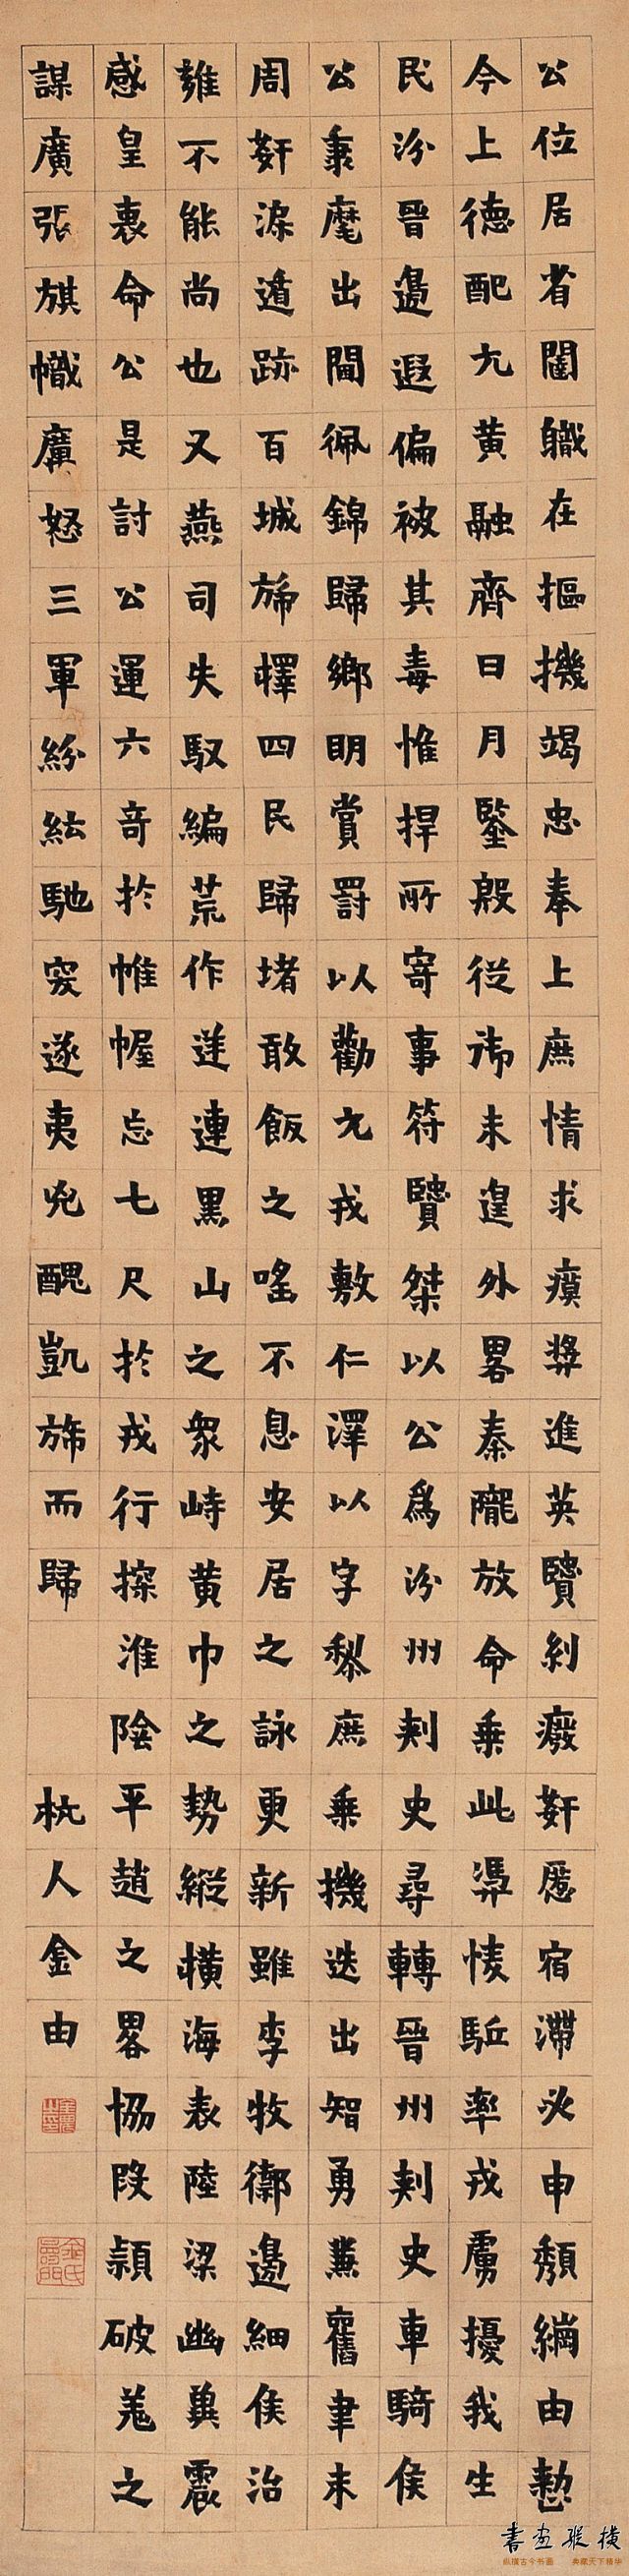 公位居省闥職在摳機竭忠奉上庶情求瘼奨進英賢糾癈姧慝宿滯必申頽綱由懃
今上德配九黄融齊日月鑒殷從禦未遑外畧秦隴放命乗此㴲悽駈率戎虜擾我生
民汾晉邊遐偏被其毒惟捍所寄事符賢桀以公為汾州刾史尋轉晉州刾史車騎侯
公秉麾出閫佩錦歸鄉明賞罰以勸九戎敷仁澤以字黎庶乗機迭出智勇兼舊聿未
周姧深遁跡百城旆擇四民歸堵敢飯之嗂不息安居之詠更新雖李牧禦邊細侯治
雍不能尚也又燕司失馭編荒作逆連黒山之衆峙黄巾之勢縱橫海表陸梁幽冀震
感皇裏命公是討公運六奇於帷幄忘七尺於戎行探淮陰平趙之畧恊段熲破羗之
謀廣張旗幟廣怒三軍紛紜馳突遂夷兇醜凱斾而歸 杭人金由